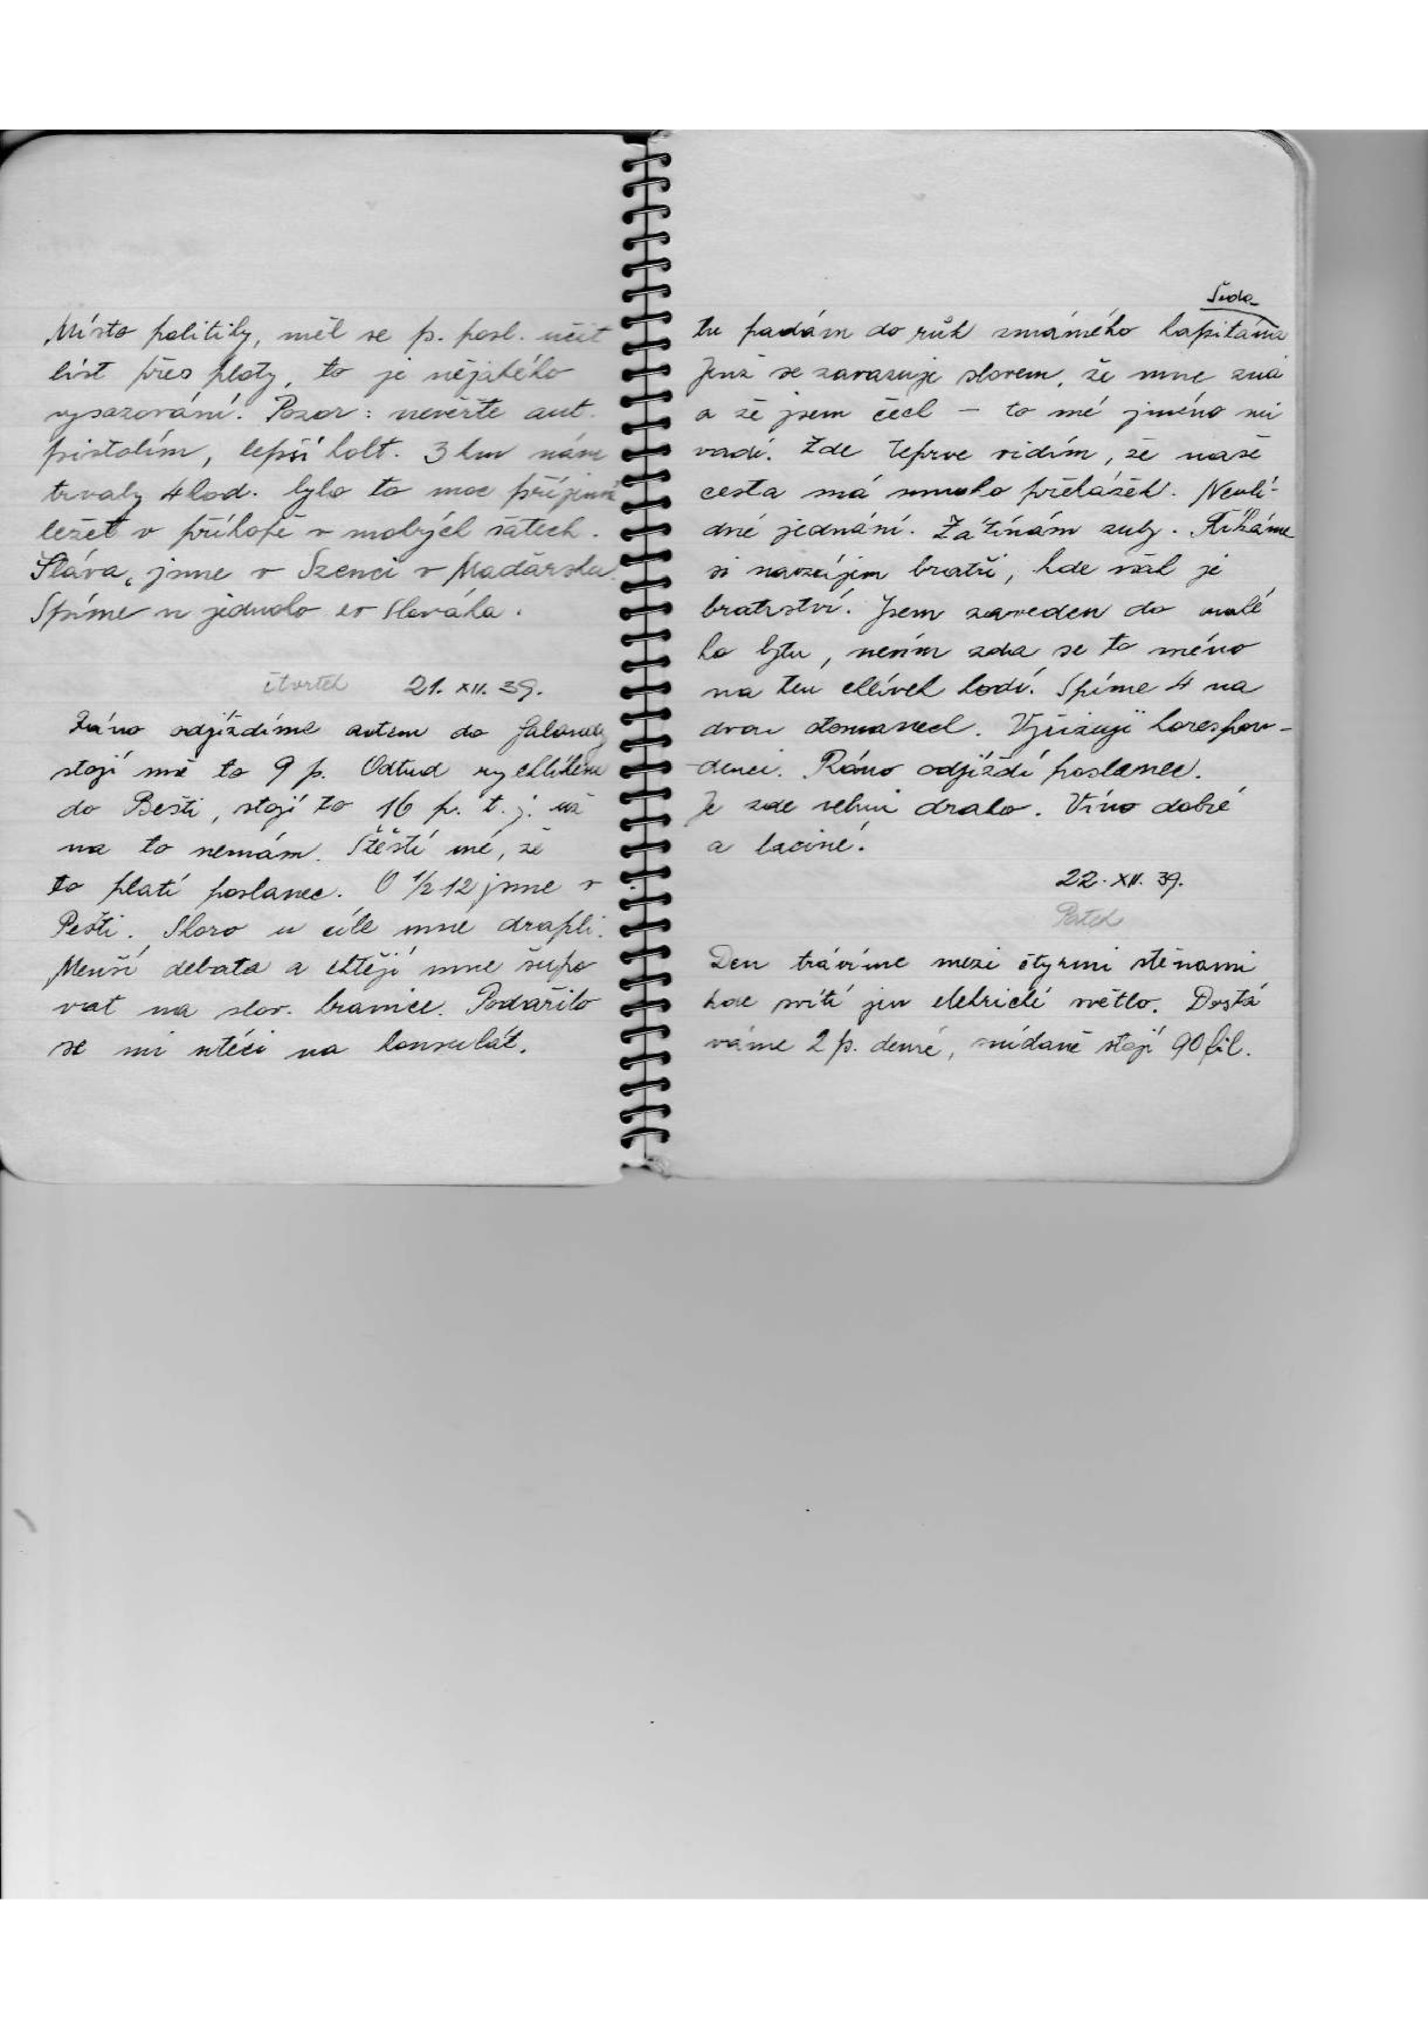 Místo politiky, měl se p. posl. učit
líst přes ploty, to je nějakého
vysazování. Pozor: nevěřte aut.
pistolím, lepší kolt. 3 km nám
trvaly 4 hod. bylo to moc příjemné
ležet v příkopě v mokrých šatech.
Sláva, jsme v Szenci v Maďarsku.
Spíme u jednoho Slováka.
čtvrtek 21. XII. 39.
Ráno odjíždíme autem do
stojí mě to 9 p. Odtud rychlíkem
do Pešti, stojí to 16 p. t. j. už
na to nemám. Štěstí mé, že
to platí poslanec. O 1/2 12 jsme v
Pešti. Skoro u cíle mne drapli.
Menší debata a chtějí mne šupo
vat na slov. hranice. Podařilo
se mi utéci na konsulát.
tu padám do růk známého kapitána
Jenž se zavazuje slovem, že mne zná
a že jsem čech – to mé jméno mi
vadí. Zde teprve vidím, že naše
cesta má mnoho překážek. Nevlí-
dné jednání. Zatínám zuby. Říkáme
si navzájem bratři, kde však je
bratrství. Jsem zaveden do malé
ho bytu, nevím zda se to méno
na ten chlívek hodí. Spíme 4 na
dvou otomanech. Vyřizuji korespon-
denci. Ráno odjíždí poslanec.
Je zde velmi draho. Víno dobré
a laciné.
22. XII. 39.
Pátek
Den trávíme mezi čtyrmi stěnami
kde svítí jen elektrické světlo. Dostá
váme 2 p. denně, snídaně stojí 90 fil.